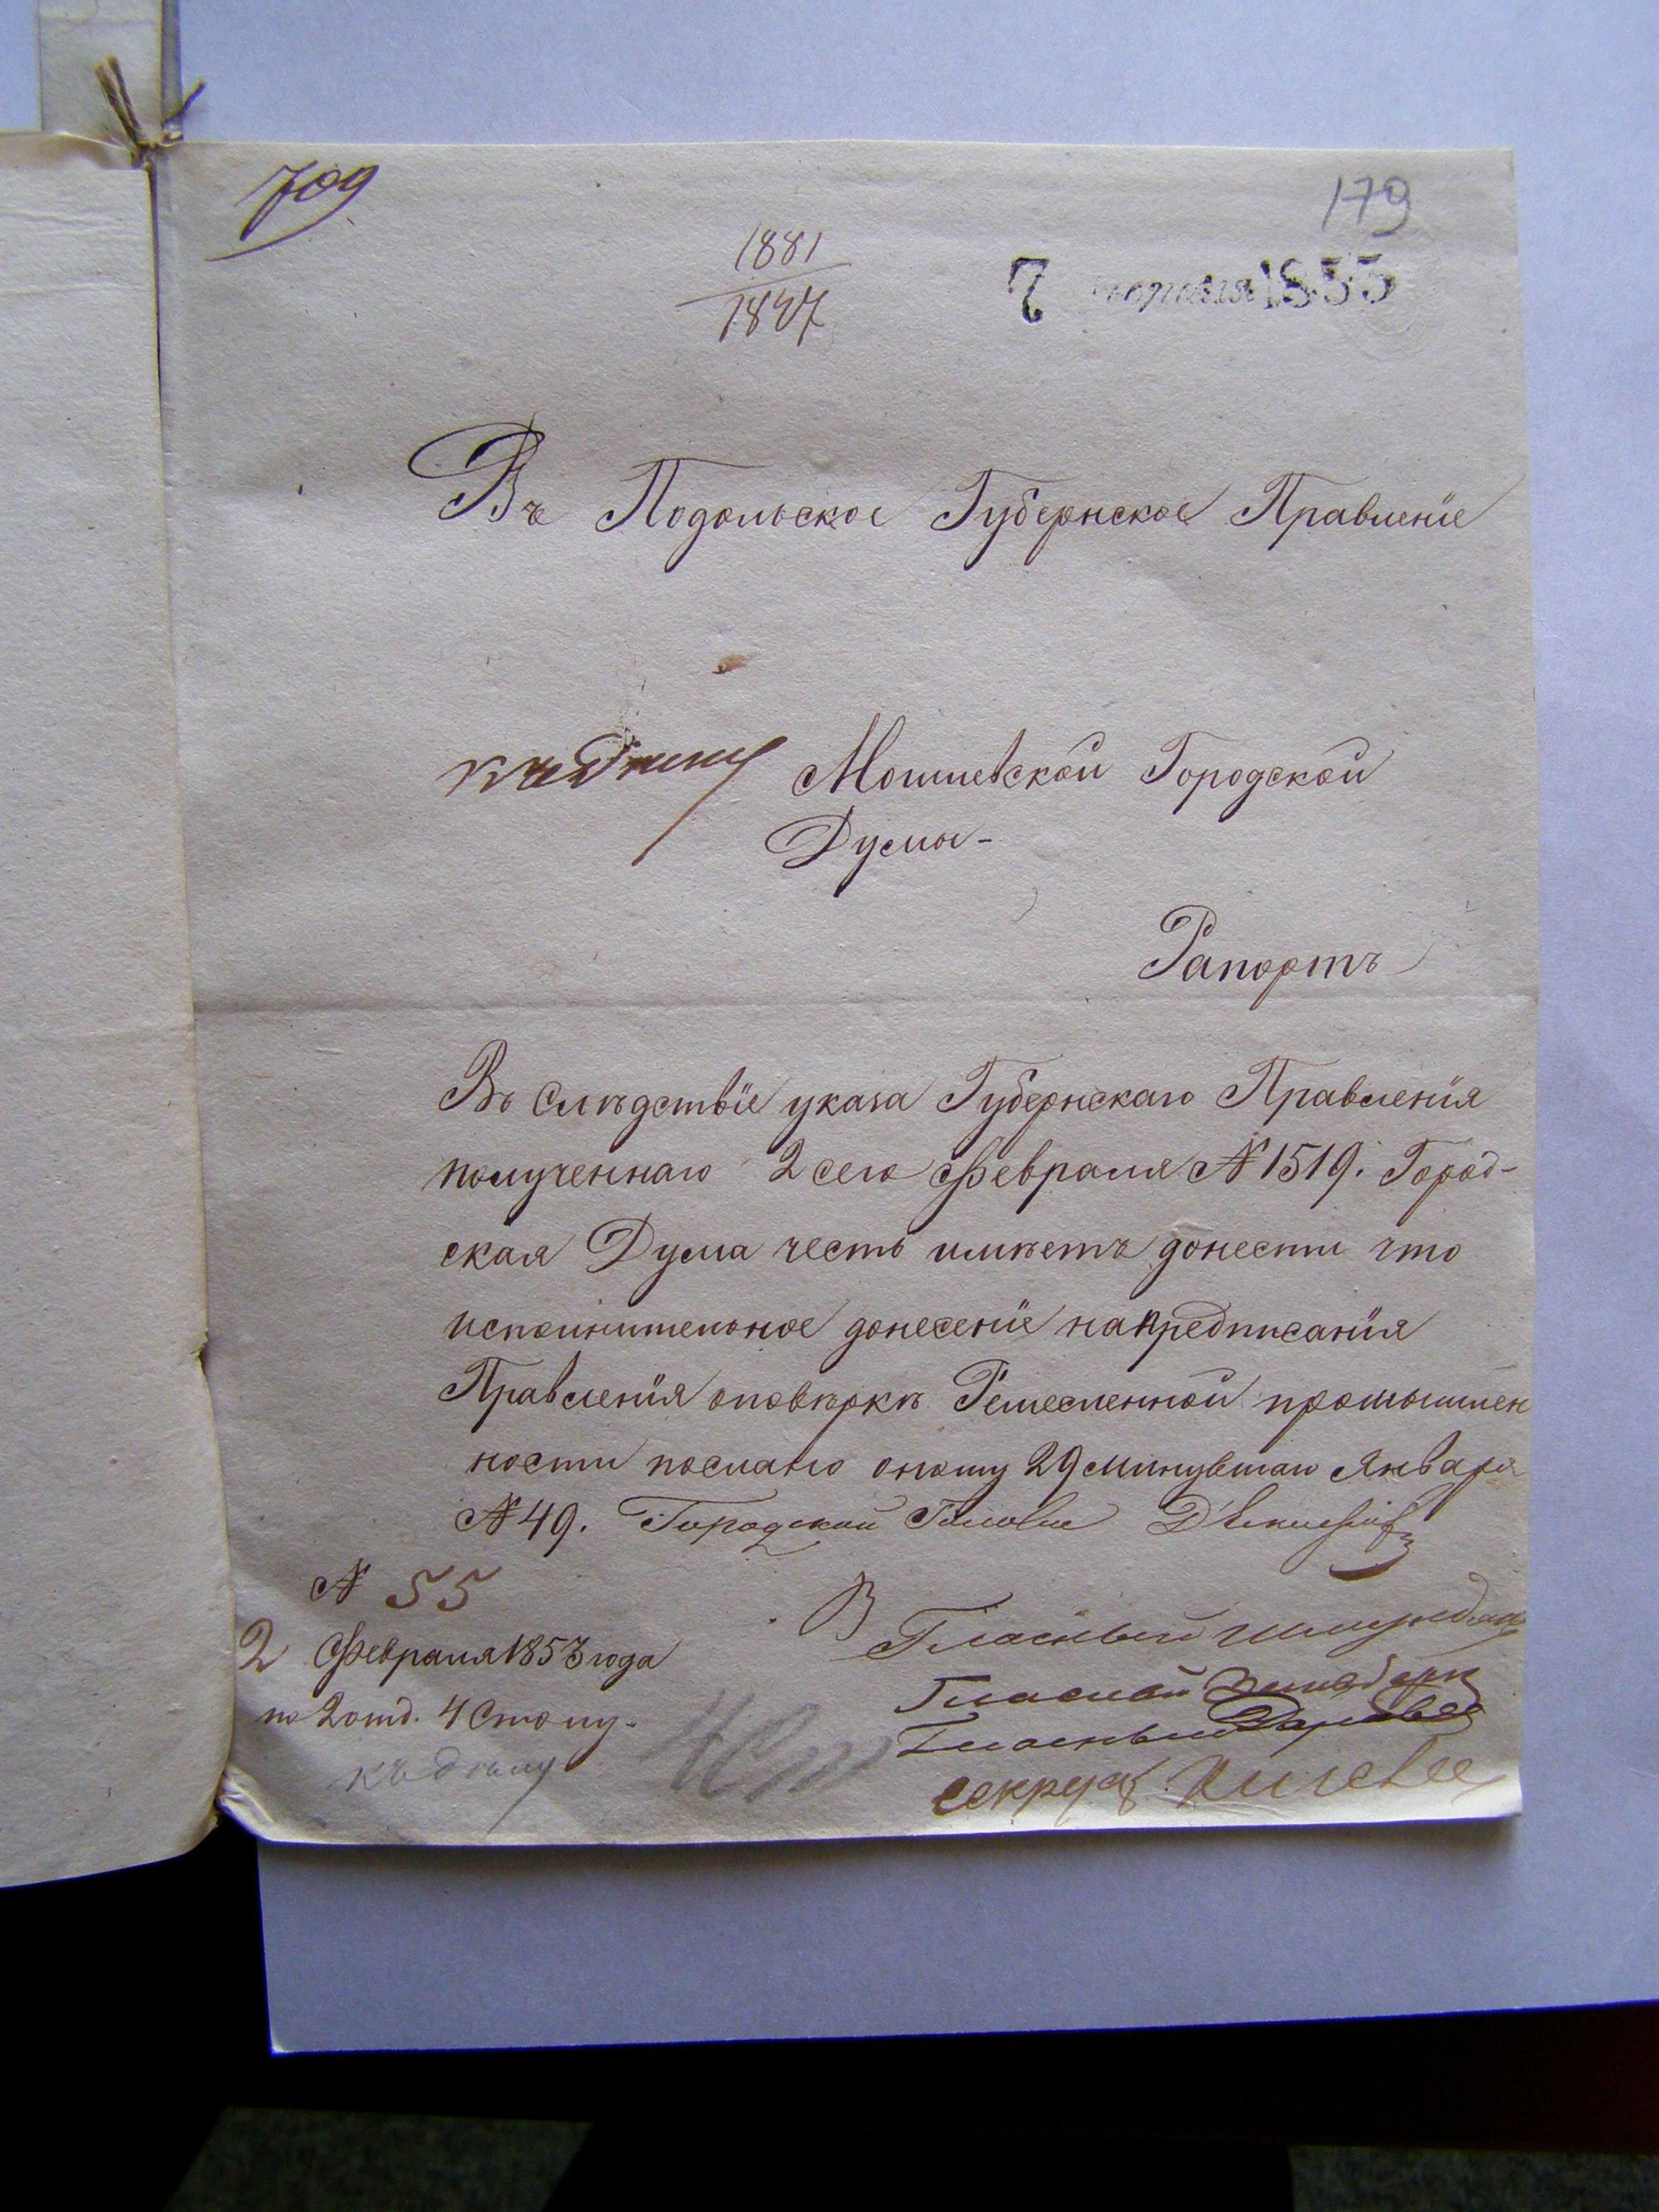 709
179
1881
1847
7 февраля 1853
Въ Подольское Губернское Правленіе
къ дѣлу
Могилевской Городской
Думы-
Рапортъ
Въ Слѣдствіе указа Губернскаго Правленія
полученнаго 2 сего Февраля № 1519. Город-
ская Дума честь имѣетъ донести что
исполнительное донесеніе напредписанія
Правленія оповѣркѣ Ремесленной промышлен
ности послано оному 29 минувшаго Января
№ 49. Городской Голова
№ 55
2 Февраля 1853 года
по 2 отд. 4 Столу.
къ дѣлу
Гласный
Гласный
Гласный